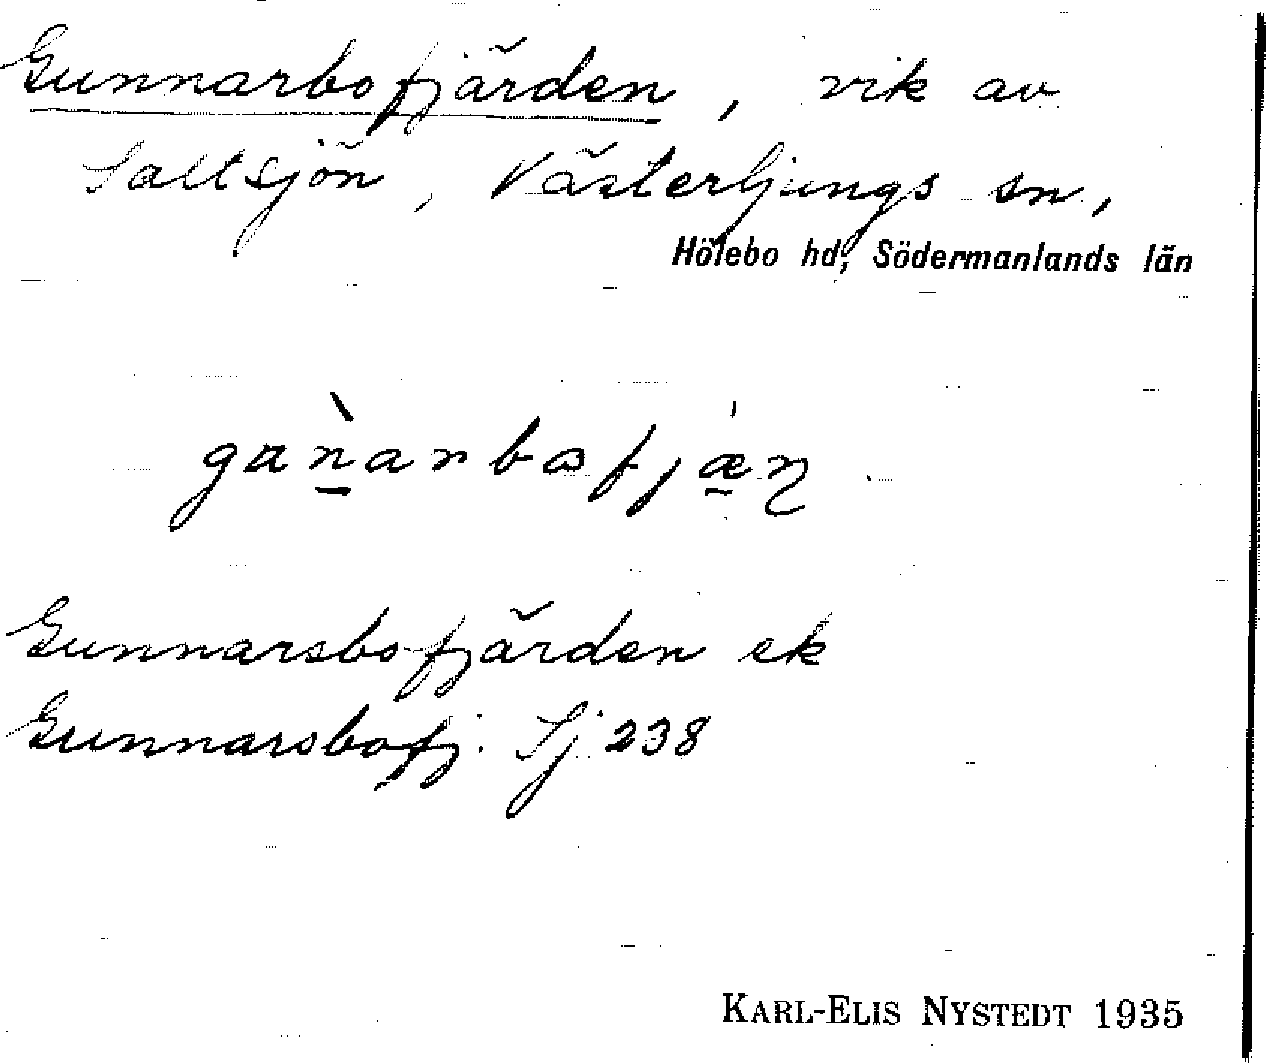 Gunnarbofjärden, vik av
Saltsjön, Västerljungs sn,
Hölebo hd, Södermanlands län
gaǹ̲arbofjæ̲̍ɳ
Gunnarsbofjärden ek
Gunnarsbofj. Sj 238
KARL-ELIS NYSTEDT 1935